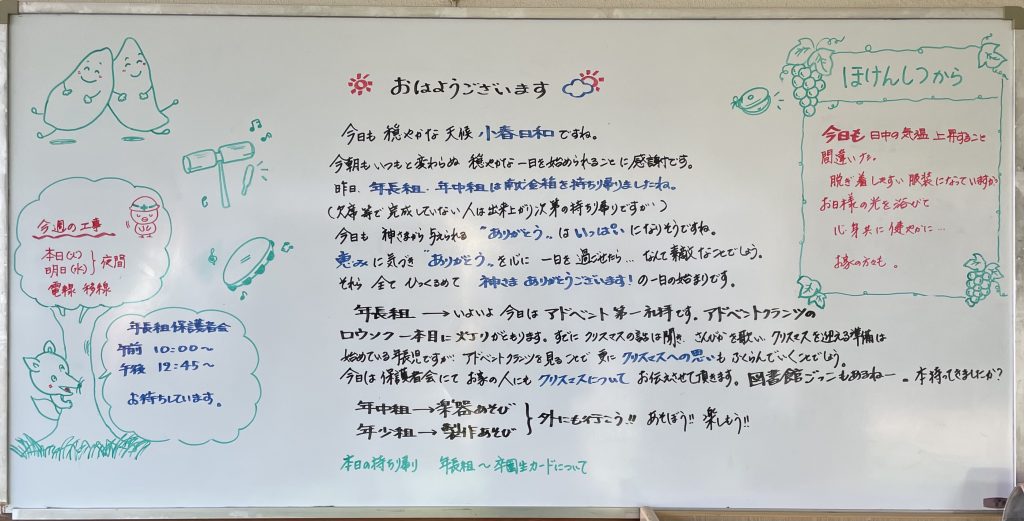 おはようございます
今日も 穏やかな 天候 小春日和ですね。
今朝も いつもと変わらぬ 穏やかな 一日を始められることに感謝です。
昨日、年長組、年中組は献金箱を持ち帰りましたね。
(欠席等で完成していない人は出来上がり次第の持ち帰りですが)
今日も 神さまから 与えられる "ありがとう" は いっぱいになりそうですね。
恵みに気づき "ありがとう" を心に 一日を過ごせたら… なんて素敵なことでしょう。
それら 全て ひっくるめて 神さま ありがとうございます! の一日の始まりです。
年長組 → いよいよ 今日は アドベント 第一礼拝です。アドベントクランツの
ロウソク 一本目に がともります。すでに クリスマスの話は聞き、さんびかを歌い クリスマスを迎える準備は
始めている年長児ですが、アドベントクランツを見ることで 更に クリスマスへの思いも ふくらんでいくことでしょう。
今日は 保護者会にて お家の人にも クリスマスについて お伝えさせて頂きます。図書館ごっこもあるねー。本持ってきましたか?
年中組 → 楽器あそび
年少組 → 製作あそび
外にも行こう!! あそぼう!! 楽しもう!!
本日の持ち帰り 年長組 〜 卒園生カードについて
今週の工事
本日(火)
明日(水) 夜間
電線 移線
年長組保護者会
午前 10:00〜
午後 12:45〜
お待ちしています。
ほけんしつから
今日も 日中の気温 上昇すること
間違いナシ。
脱ぎ着しやすい 服装になっていますか
お日様の光を浴びて
心身共に 健やかに…
お家の方々も。